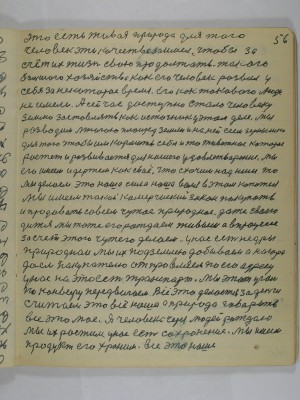 56
Это есть живая природа для того
человек это качественился, чтобы за
счет их жизнь свою продолжать. такого
большого хозяйства как его человек развил у
себя за некоторое время. его как такового люди
не имели. А сейчас доступно стало человеку
землю заставлять как источник в этом деле. мы
разводим много площадь земли и на ней сеем зерно
для того чтобы им кормить себя и то животное которое
растет и развивается для нашего удовлетворения. мы
его имеем и держим как своё, что хочем над ним то
мы делаем это наша сила наша воля в этом хотении
Мы имеем такой коммерческий закон покупать
и продавать совсем чужое природное. даже своего
дитя мы тоже его рождаем живым а
за счет этого чужого делаем. у нас есть недра
природная мы их под землею добываем а на гора
даем и отправляем по его адресу
у нас на это есть транспорт. мы этот
передвигаем. Всё это делается за деньги
считаем это всё наше а природа говорит
все это моё. Я человека через людей рождаю
мы их растим у нас есть сохранение. Мы имеем
продукт его храним. Все это наше